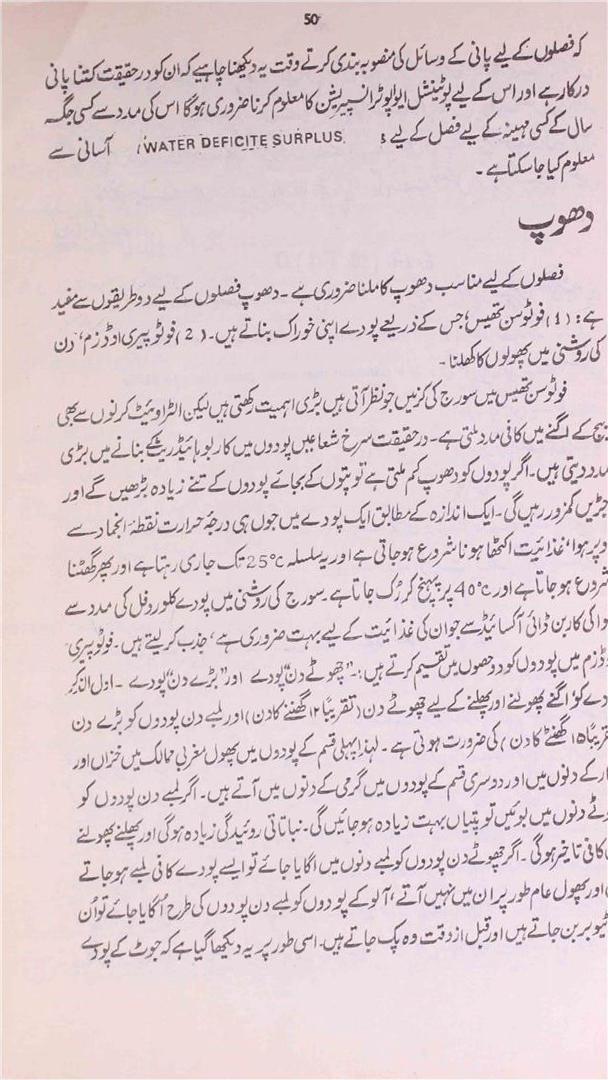 50
کہ فصلوں کے لیے پانی کے وسائل کی منصوبہ بندی کرتے وقت یہ دیکھنا چاہیے کہ ان کو در حقیقت کتنا پانی
درکار ہے اور اس کے لیے پوٹینشل ایواپوٹرانسپیریشن کا معلوم کرنا ضروری ہوگا اس کی مدد سے کسی جگہ
سال کے کسی مہینہ کے لیے فصل کے لیے WATER DEFICITE SURPLUS آسانی سے
معلوم کیا جاسکتا ہے ۔
دھوپ
فصلوں کے لیے مناسب دھوپ کا ملنا ضروری ہے ۔ دھوپ فصلوں کے لیے دو طریقوں سے مفید
ہے : (1) فوٹوسن تھیس، جس کے ذریعے پودے اپنی خوراک بناتے ہیں۔ (2) فوٹو پیری اوڈزم، دن
کی روشنی میں پھولوں کا کھلنا ۔
فوٹوسن تھیس میں سورج کی کرنیں جو نظر آتی ہیں بڑی اہمیت رکھتی ہیں لیکن الٹراوئیٹ کرنوں سے بھی
بیج کے اگنے میں کافی مدد ملتی ہے ۔ در حقیقت سرخ شعاعیں پودوں میں کاربوہائیڈریٹ کے بنانے میں بڑی
مدد دیتی ہیں۔ اگر پودوں کو دھوپ کم ملتی ہے تو پتوں کے بجائے پودوں کے تنے زیادہ بڑھیں گے اور
جڑیں کمزور رہیں گی ۔ ایک اندازہ کے مطابق ایک پودے میں جوں ہی درجۂ حرارت نقطۂ انجماد سے
وپر ہوا، غذائیت اکٹھا ہونا شروع ہوجاتی ہے اور یہ سلسلہ 25°c تک جاری رہتا ہے اور پھر گھٹنا
شروع ہو جاتا ہے اور 40°c پر پہنچ کر رُک جاتا ہے ۔ سورج کی روشنی میں پودے کلوروفل کی مدد سے
وا کی کاربن ڈائی آکسائیڈ سے جو ان کی غذائیت کے لیے بہت ضروری ہے، جذب کر لیتے ہیں ۔ فوٹو پیری
وڈزم میں پودوں کو دو حصوں میں تقسیم کرتے ہیں : ۔ "چھوٹے دن" پودے اور "بڑے دن" پودے ۔ اول الذکر
دے کو اگنے پھولنے اور پھلنے کے لیے چھوٹے دن (تقریباً ۱۲ گھنٹے کا دن) اور لمبے دن پودوں کو بڑے دن
قریباً ۱۵ گھنٹے کا دن) کی ضرورت ہوتی ہے ۔ لہٰذا پہلی قسم کے پودوں میں پھول مغربی ممالک میں خزاں اور
ار کے دنوں میں اور دوسری قسم کے پودوں میں گرمی کے دنوں میں آتے ہیں۔ اگر لمبے دن پودوں کو
وٹے دنوں میں بوئیں تو پتیاں بہت زیادہ ہو جائیں گی۔ نباتاتی روئیدگی زیادہ ہوگی اور پھلنے پھولنے
کافی تاخیر ہوگی ۔ اگر چھوٹے دن پودوں کو لمبے دنوں میں اگایا جائے تو ایسے پودے کافی لمبے ہو جاتے
اور پھول عام طور پر ان میں نہیں آتے، آلو کے پودوں کو لمبے دن پودوں کی طرح اُگایا جائے تو اُن
ٹیوبر بن جاتے ہیں اور قبل از وقت وہ پک جاتے ہیں۔ اسی طور پر یہ دیکھا گیا ہے کہ جوٹ کے پودے